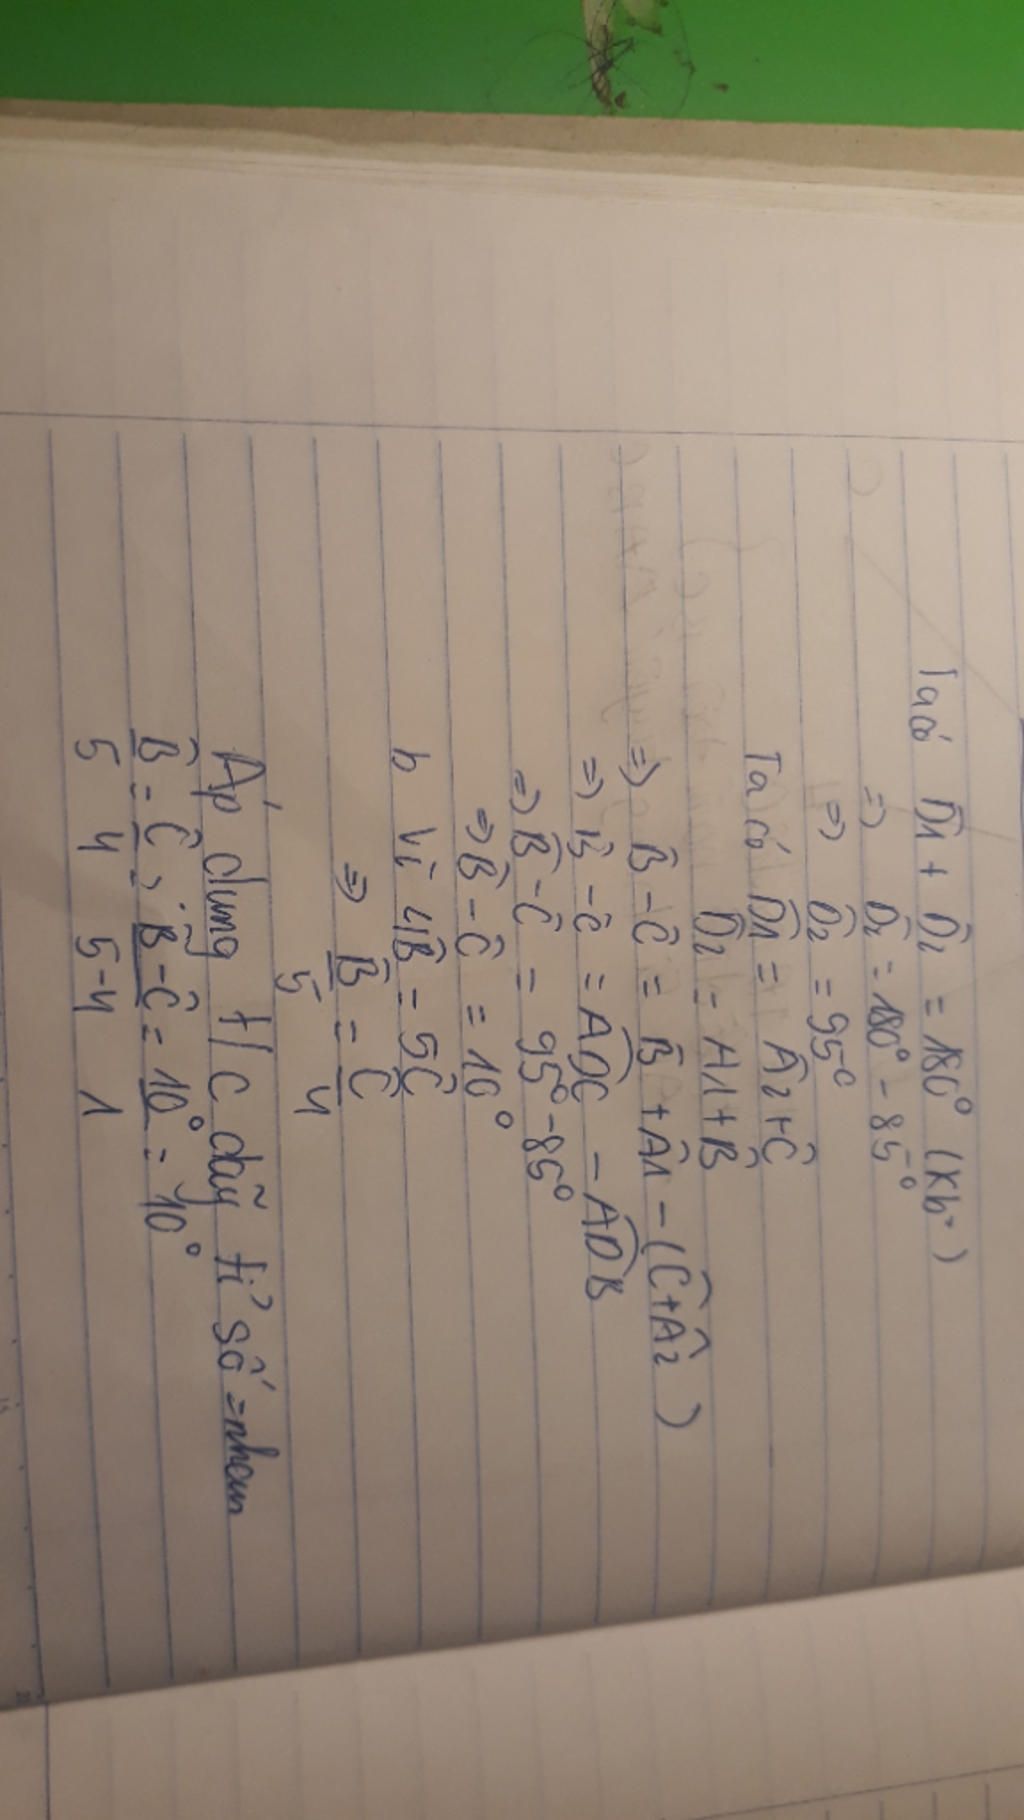 Ta có D̂1 + D̂2 = 180° (kb)
=> D̂2 = 180° - 85°
=> D̂2 = 95°
Ta có D̂1 = Â2 + Ĉ
D̂2 = A1 + B̂
=> B̂ - Ĉ = B̂ + Â1 - (Ĉ + Â2)
=> B̂ - Ĉ = ADC - ADB
=> B̂ - Ĉ = 95° - 85°
=> B̂ - Ĉ = 10°
b Vì 4B̂ = 5Ĉ
=> B̂/5 = Ĉ/4
Áp dụng t/c dãy tỉ số = nhau
B̂/5 = Ĉ/4 = B̂ - Ĉ/5-4 = 10°/1 = 10°